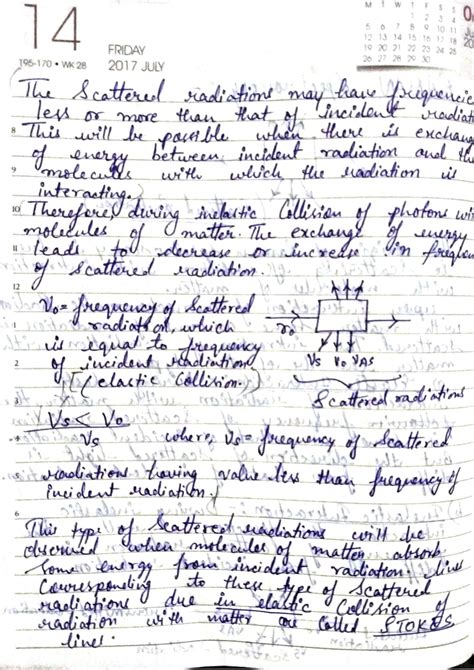 14
FRIDAY
195-170 • WK 28 2017 JULY
M T W T F S
1 2 3 4
5 6 7 8 9 10 11
12 13 14 15 16 17 18
19 20 21 22 23 24 25
26 27 28 29 30
The Scattered radiations may have frequencie
less or more than that of incident radiat
8 This will be possible when there is exchan
of energy between incident radiation and th
9 molecules with which the radiation is
interacting.
10 Therefore, during inelastic Collision of photons wi
molecules of matter. The exchange of energy
11 leads to decrease or increase in frequen
of scattered radiation.
12
V₀ = frequency of Scattered
1 radiation, which
is equal to frequency
2 of incident radiation
(elastic Collision.)
Vs V₀ VAS
Scattered radiations
3 Vs < V₀
4 Vs where, V₀ = frequency of Scattered
5 radiations having value less than frequency of
incident radiation.
6
This type of Scattered radiations will be
observed when molecules of matter absorb
Some energy from incident radiation. lines
Corresponding to these type of Scattered
radiations due in elastic Collision of
radiation with matter are Called STOKES
lines.